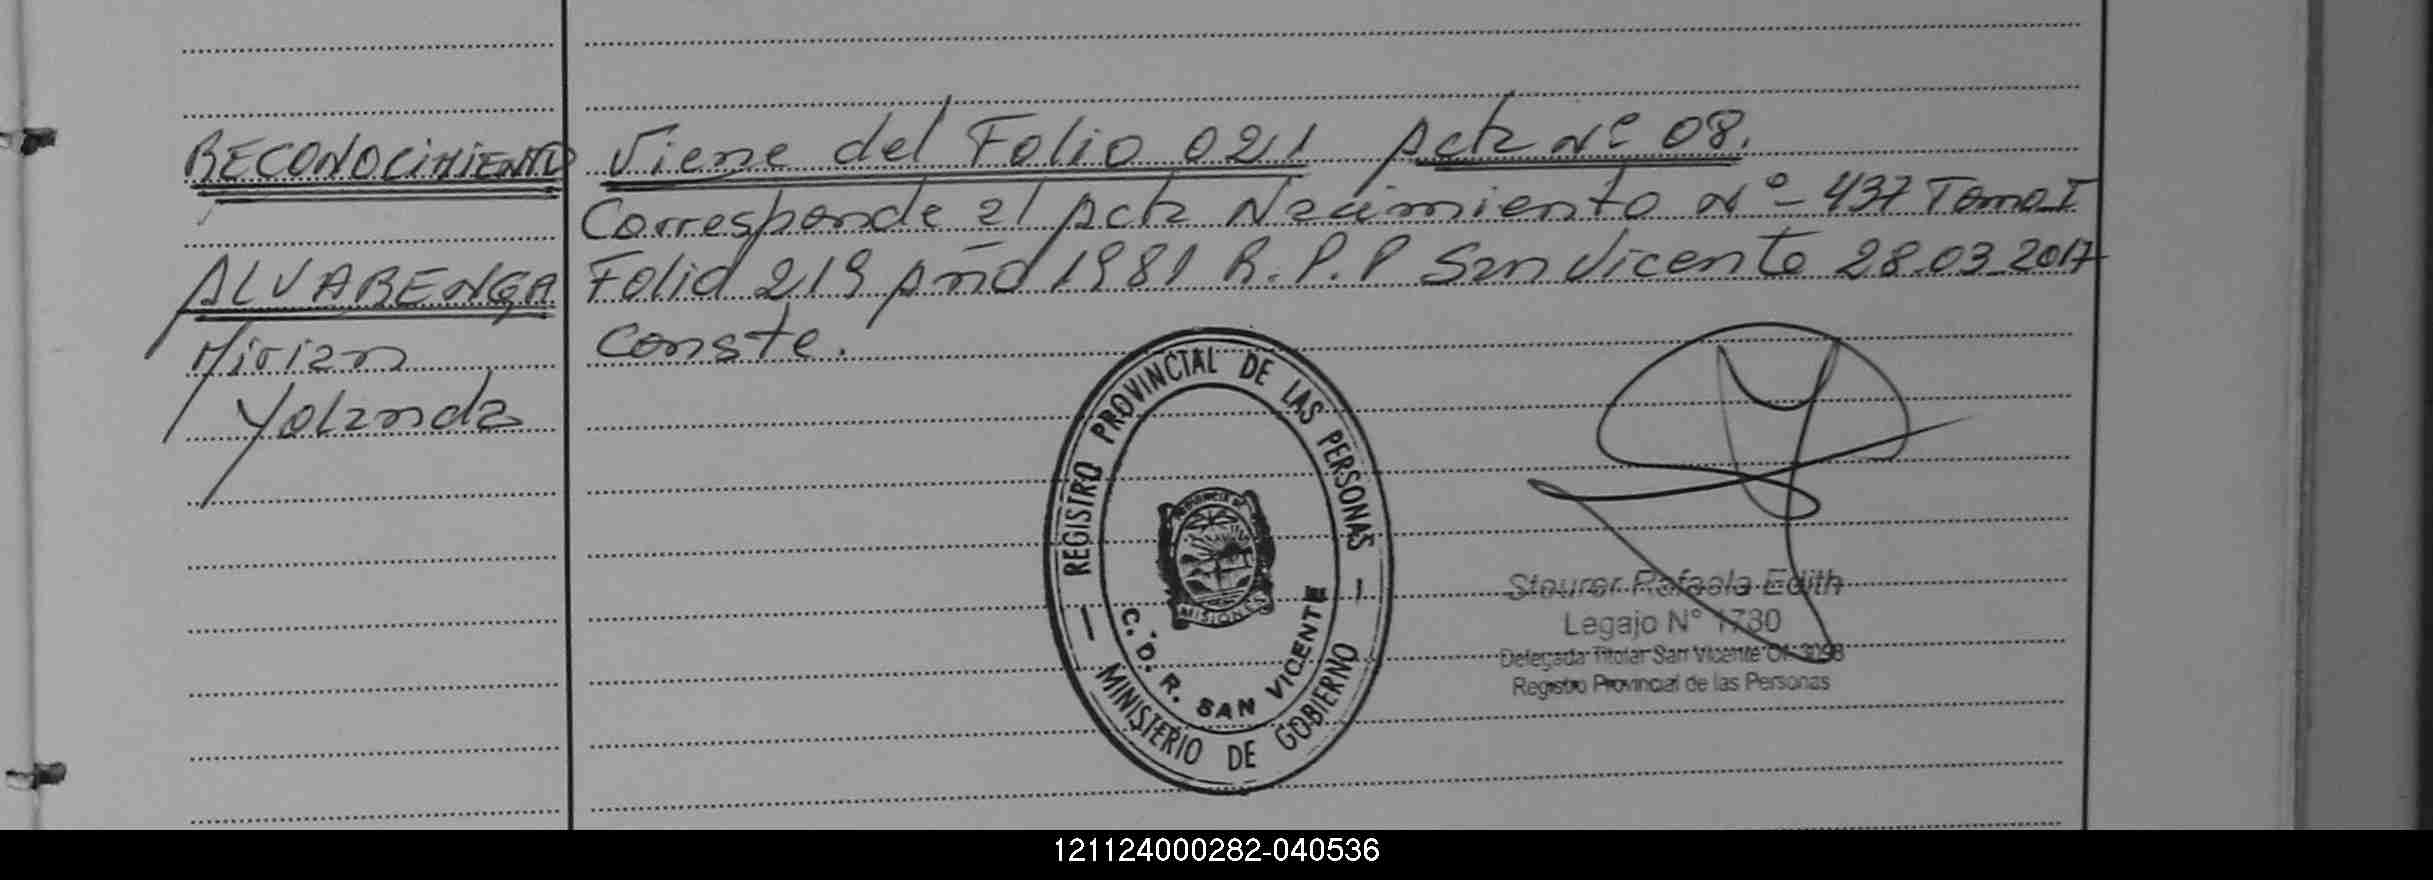 RECONOCIMIENTO Viene del Folio 021 Acta Nº 08.
Corresponde al Acta Nacimiento Nº 437 Tomo I
ALVARENGA Folio 219 Año 1981 R.P.P San Vicente 28.03.2017
Mirian conste.
Yolanda
REGISTRO PROVINCIAL DE LAS PERSONAS
PROVINCIA DE
MISIONES
C.D.R. SAN VICENTE
MINISTERIO DE GOBIERNO
Steurer Rafaela Edith
Legajo N° 1730
Delegada Titular San Vicente Of. 3098
Registro Provincial de las Personas
121124000282-040536